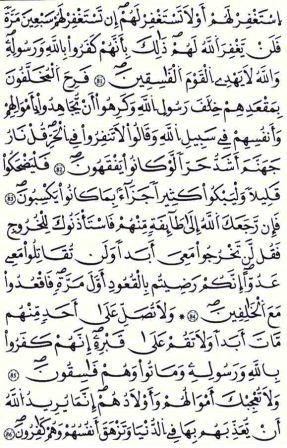 اِسْتَغْفِرْ لَهُمْ أَوْ لَا تَسْتَغْفِرْ لَهُمْ إِن تَسْتَغْفِرْ لَهُمْ سَبْعِينَ مَرَّةً
فَلَن يَغْفِرَ اللَّهُ لَهُمْ ذَٰلِكَ بِأَنَّهُمْ كَفَرُوا بِاللَّهِ وَرَسُولِهِ
وَاللَّهُ لَا يَهْدِي الْقَوْمَ الْفَٰسِقِينَ 81 فَرِحَ الْمُخَلَّفُونَ
بِمَقْعَدِهِمْ خِلَٰفَ رَسُولِ اللَّهِ وَكَرِهُوا أَن يُجَٰهِدُوا بِأَمْوَٰلِهِمْ
وَأَنفُسِهِمْ فِي سَبِيلِ اللَّهِ وَقَالُوا لَا تَنفِرُوا فِي الْحَرِّ قُلْ نَارُ
جَهَنَّمَ أَشَدُّ حَرًّا لَّوْ كَانُوا يَفْقَهُونَ 82 فَلْيَضْحَكُوا
قَلِيلًا وَلْيَبْكُوا كَثِيرًا جَزَاءً بِمَا كَانُوا يَكْسِبُونَ 83
فَإِن رَّجَعَكَ اللَّهُ إِلَىٰ طَائِفَةٍ مِّنْهُمْ فَاسْتَأْذَنُوكَ لِلْخُرُوجِ
فَقُل لَّن تَخْرُجُوا مَعِيَ أَبَدًا وَلَن تُقَٰتِلُوا مَعِيَ
عَدُوًّا إِنَّكُمْ رَضِيتُم بِالْقُعُودِ أَوَّلَ مَرَّةٍ فَاقْعُدُوا
مَعَ الْخَٰلِفِينَ 84 وَلَا تُصَلِّ عَلَىٰ أَحَدٍ مِّنْهُم
مَّاتَ أَبَدًا وَلَا تَقُمْ عَلَىٰ قَبْرِهِ إِنَّهُمْ كَفَرُوا
بِاللَّهِ وَرَسُولِهِ وَمَاتُوا وَهُمْ فَٰسِقُونَ 85
وَلَا تُعْجِبْكَ أَمْوَٰلُهُمْ وَأَوْلَٰدُهُمْ إِنَّمَا يُرِيدُ اللَّهُ
أَن يُعَذِّبَهُم بِهَا فِي الدُّنْيَا وَتَزْهَقَ أَنفُسُهُمْ وَهُمْ كَٰفِرُونَ 86